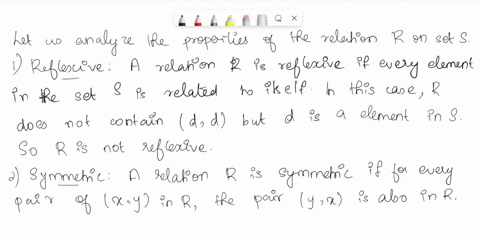 Let us analyze the properties of the relation R on set S.
1) Reflexive: A relation R is reflexive if every element
in the set S is related to itself. In this case, R
does not contain (d,d) but d is a element in S.
So R is not reflexive.
2) Symmetric: A relation R is symmetric if for every
pair of (x,y) in R, the pair (y,x) is also in R.